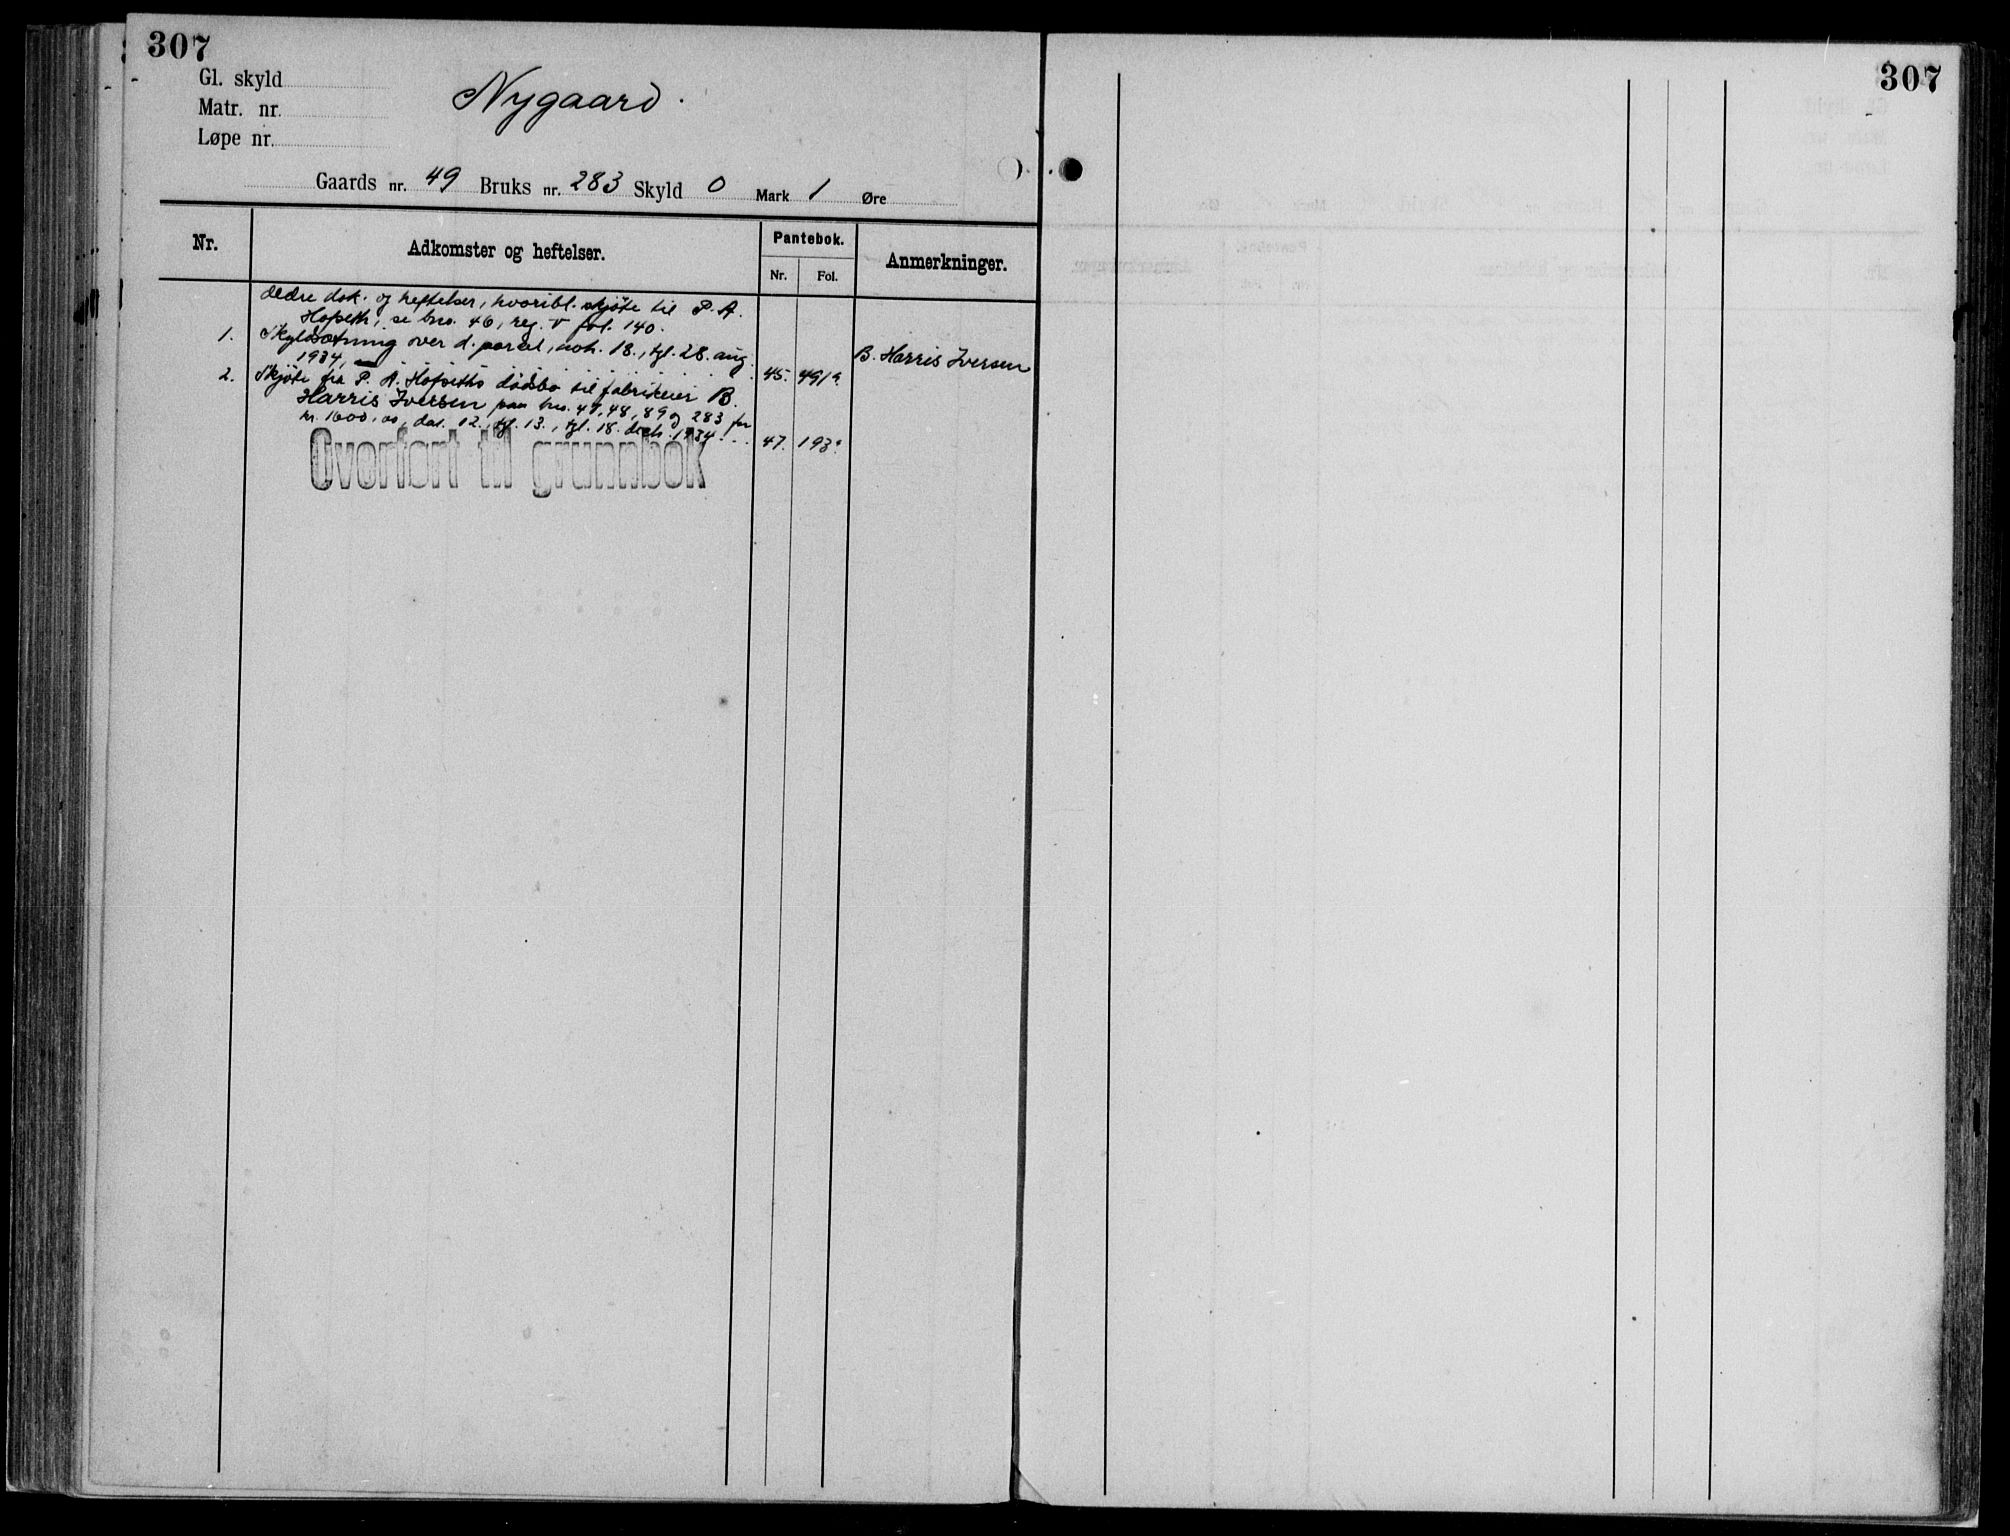 307
307
Gl. skyld
Matr. nr.
Løpe nr.
Nygaard.
Gaards nr. 49 Bruks nr. 283 Skyld 0 Mark 1 Øre
Nr. Adkomster og heftelser. Pantebok. Anmerkninger.
Nr. Fol.
Ældre dok. og heftelser, hvoribl. skjøte til P. A.
Hofseth, se bno. 46, reg. V fol. 140.
1. Skyldsætning over d. parcel, avh. 18., tgl. 28. aug.
1934, 45. 491
B. Harris Iversen
2. Skjøte fra P. A. Hofseths dødsbo til fabrikeier B.
Harris Iversen paa bno. 47, 48, 89 og 283 for
kr. 1600,00, dat. 12., tgl. 13., tgl. 18. decb. 1934 47. 193
Overført til grunnbok